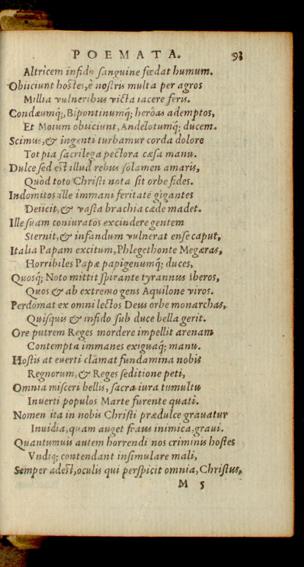 POEMATA. 93
Altricem infido sanguine fœdat humum.
Obiiciunt hostes, è nostris multa per agros
Millia vulneribus victa iacere feris.
Condæumq;, Bipontinumq; heròas ademptos,
Et Motum obiiciunt, Andelotumq; ducem.
Scimus, & ingenti turbamur corda dolore
Tot pia sacrilega pectora cæsa manu.
Dulce sed est illud rebus solamen amaris,
Quòd toto Christi nota sit orbe fides.
Indomitos ille immani feritate gigantes
Deiicit, & vasta brachia cæde madet.
Ille suam coniuratos excindere gentem
Sternit, & infandum vulnerat ense caput,
Italia Papam excitum, Phlegethonte Megæras,
Horribiles Papæ papigenumq; duces,
Quosq; Noto mittit spirante tyrannus iberos,
Quos & ab extremo gens Aquilone viros.
Perdomat ex omni lectos Deus orbe monarchas,
Quisquis & infido sub duce bella gerit.
Ore putrem Reges mordere impellit arenam
Contempta immanes exiguaq; manu.
Hostis at euerti clamat fundamina nobis
Regnorum, & Reges seditione peti,
Omnia misceri bellis, sacra iura tumultu
Inuerti populos Marte furente quati.
Nomen ita in nobis Christi prædulce grauatur
Inuidia, quam auget fraus inimica, graui.
Quantumuis autem horrendi nos criminis hostes
Vndiq; contendant insimulare mali,
Semper adest, oculis qui perspicit omnia, Christus,
M 5